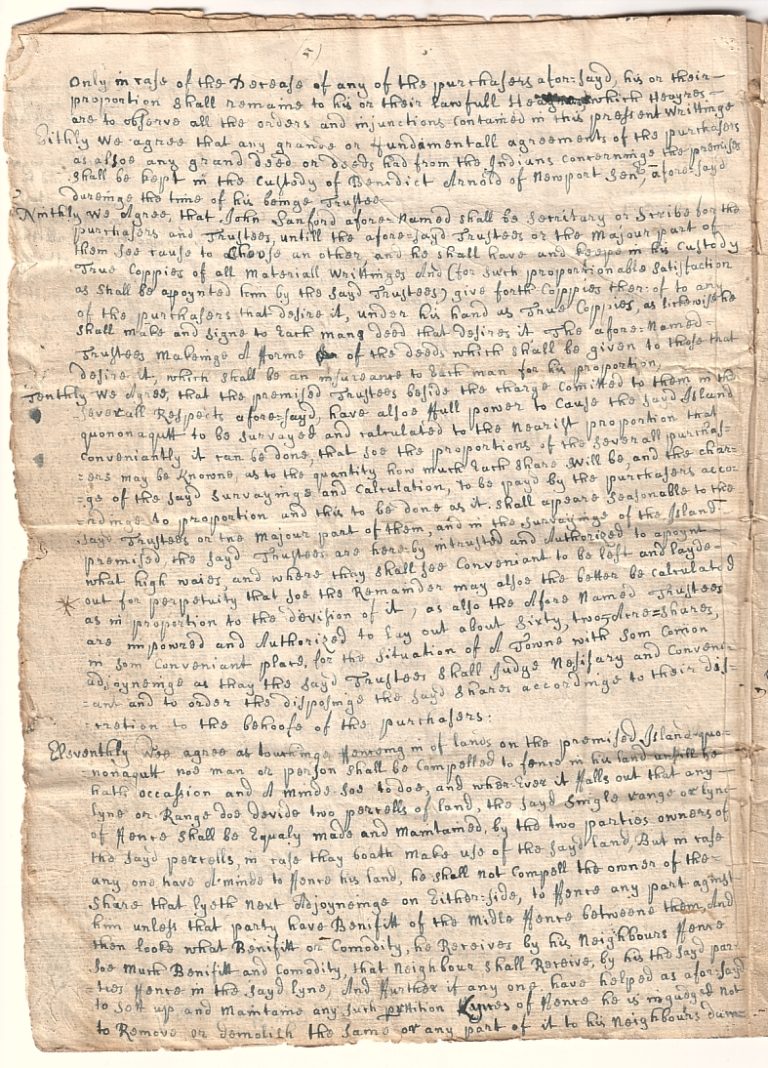 (5)
Only in case of the Decease of any of the purchasers afore=sayd, his or their
proportion shall remaine to his or their lawfull which Heayres
are to observe all the orders and injunctions Contained in this present Writtinge
Eithly We agree that any grande or fundamentall agreements of the purchasers
as alsoe any grand deed or deeds had from the Indians concerninge the premises
shall be kept in the Custody of Benidict Arnold of Newport Senr, afore=sayd
dureinge the time of his beinge Trustee
Ninthly We Agree, that John Sanford afore=Named shall be Secritary or Scribe for the
purchasers and Trustees, untill the afore=sayd Trustees or the Majour part of
them see cause to Choose an other, and he shall have and keepe in his Custody
True Coppies of all Materiall Writtinges And (for such proportionable Satisfaction
as shall be apoynted him by the sayd Trustees) give forth Coppies ther=of to any
of the purchasers that desire it, under his hand as True Coppies, as likewise he
shall make and signe to Each mans deed that desires it The afore=Named=
Trustees Makeinge A fforme of the deeds which shall be given to those that
desire it, which shall be an insureance to Each man for his proportion,
Tenthly We Agree, that the premised Trustees beside the charge Comitted to them in the
severall Respects afore=sayd, have alsoe ffull power to Cause the sayd Island
quononaqutt to be survayed and calculated to the Nearist proportion that
conveniantly it can be done, that soe the proportions of the severall purchas=
=ers may be Knowne, as to the quantity how much Each share will be, and the char=
=ge of the sayd survayinge and Calculation, to be payd by the purchasers acco=
=rdinge to proportion and this to be done as it shall apeare seasonable to the
sayd Trustees or the Majour part of them, and in the survayinge of the Island
premised, the sayd Trustees are hereby intrusted and Authorized to apoynt
what high waies and where thay shall see Conveniant to be left and layde=
out for perpetuity that soe the Remainder may alsoe the better be Calculated
as in proportion to the devision of it, as also the Afore Named Trustees
are impowred and Authorized to Lay out about Sixty, two=Acre=shares,
in som Conveniant place, for the situation of A Towne with som Comon
adjoyneinge as thay the sayd Trustees shall Judge Nesisary and Conveni=
=ant and to order the disposinge the sayd shares accordinge to their dis=
=cretion to the behoofe of the purchasers:
Eleventhly Wee agree as touchinge ffenceing in of lands on the premised Island quo=
=nonaqutt noe man or person shall be Compelled to fence in his land untill he
hath occassion and A minde soe to doe, and wher=Ever it ffalls out that any
lyne or Range doe devide two percells of land, the sayd single range or lyne
of ffence shall be Equaly made and Maintained, by the two parties owners of
the sayd percells, in case thay boath make use of the sayd land, But in case
any one have A minde to ffence his land, he shall not Compell the owner of the=
share that lyeth next Adjoyneinge on Either=side, to ffence any part against
him unless that party have Benifitt of the Midle ffence betweene them, And
then looke what Benifitt or Comodity, he Receives by his Neighbours ffence
soe Much Benifitt and Comodity, that Neighbour shall Receive, by his the sayd par=
=ties ffence in the sayd lyne, And ffurther if any one have helped as afor=sayd
to sett up, and Maintaine any such partition Lynes of ffence he is not
to Remove or demolish the same or any part of it to his Neighbours dam=